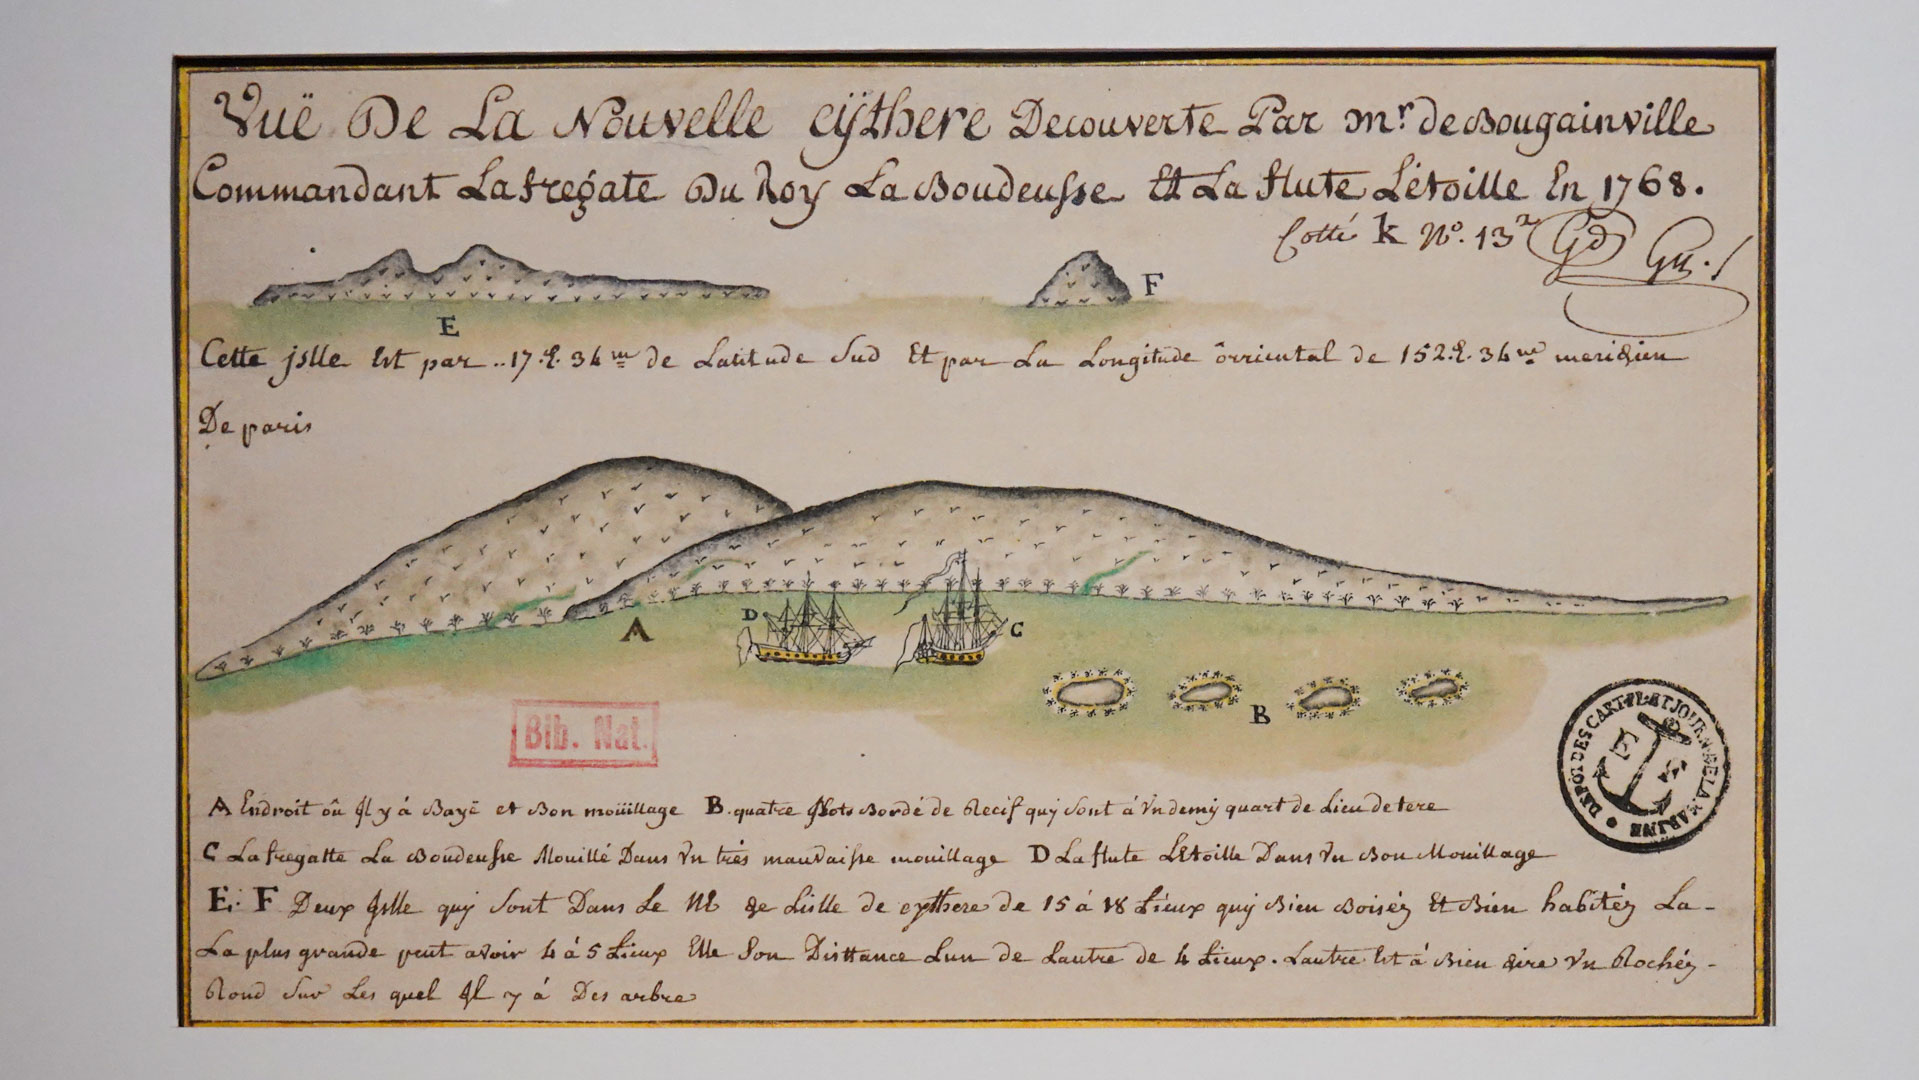 Vuë De La Nouvelle cÿthere Decouverte Par mr. de Bougainville
Commandant La fregate Du Roy La Boudeusse Et La flute Létoille En 1768.
Cotté k No. 13
E
F
Cette jslle Est par 17. 34 m de Latitude Sud Et par La Longitude ôrriental de 152. 34 me meridien
De paris
A
D
C
B
Bib. Nat.
DEPOT DES CARTES ET JOURN. DE LA MARINE
A Endroit oû Jl y á Baye et Bon moüillage B. quatre Jlots Bordé de Recif quy sont á Vn demy quart de Lieu de tere
C La fregatte La Boudeusse Mouillé Dans Vn trés mauvaisse mouillage D La flute LEtoille Dans Vn Bon Mouillage
E. F Deux Jslle quy sont Dans Le NE de Lislle de cythere de 15 á 18 Lieux quy Bien Boiséz Et Bien habitéz La-
La plus grande peut avoir 4 á 5 Lieux Elle Son Disttance Lun de Lautre de 4 Lieux. Lautre Est á Bien dire Vn Rochéz-
Rond Sur Les quel Jl y á Des arbre